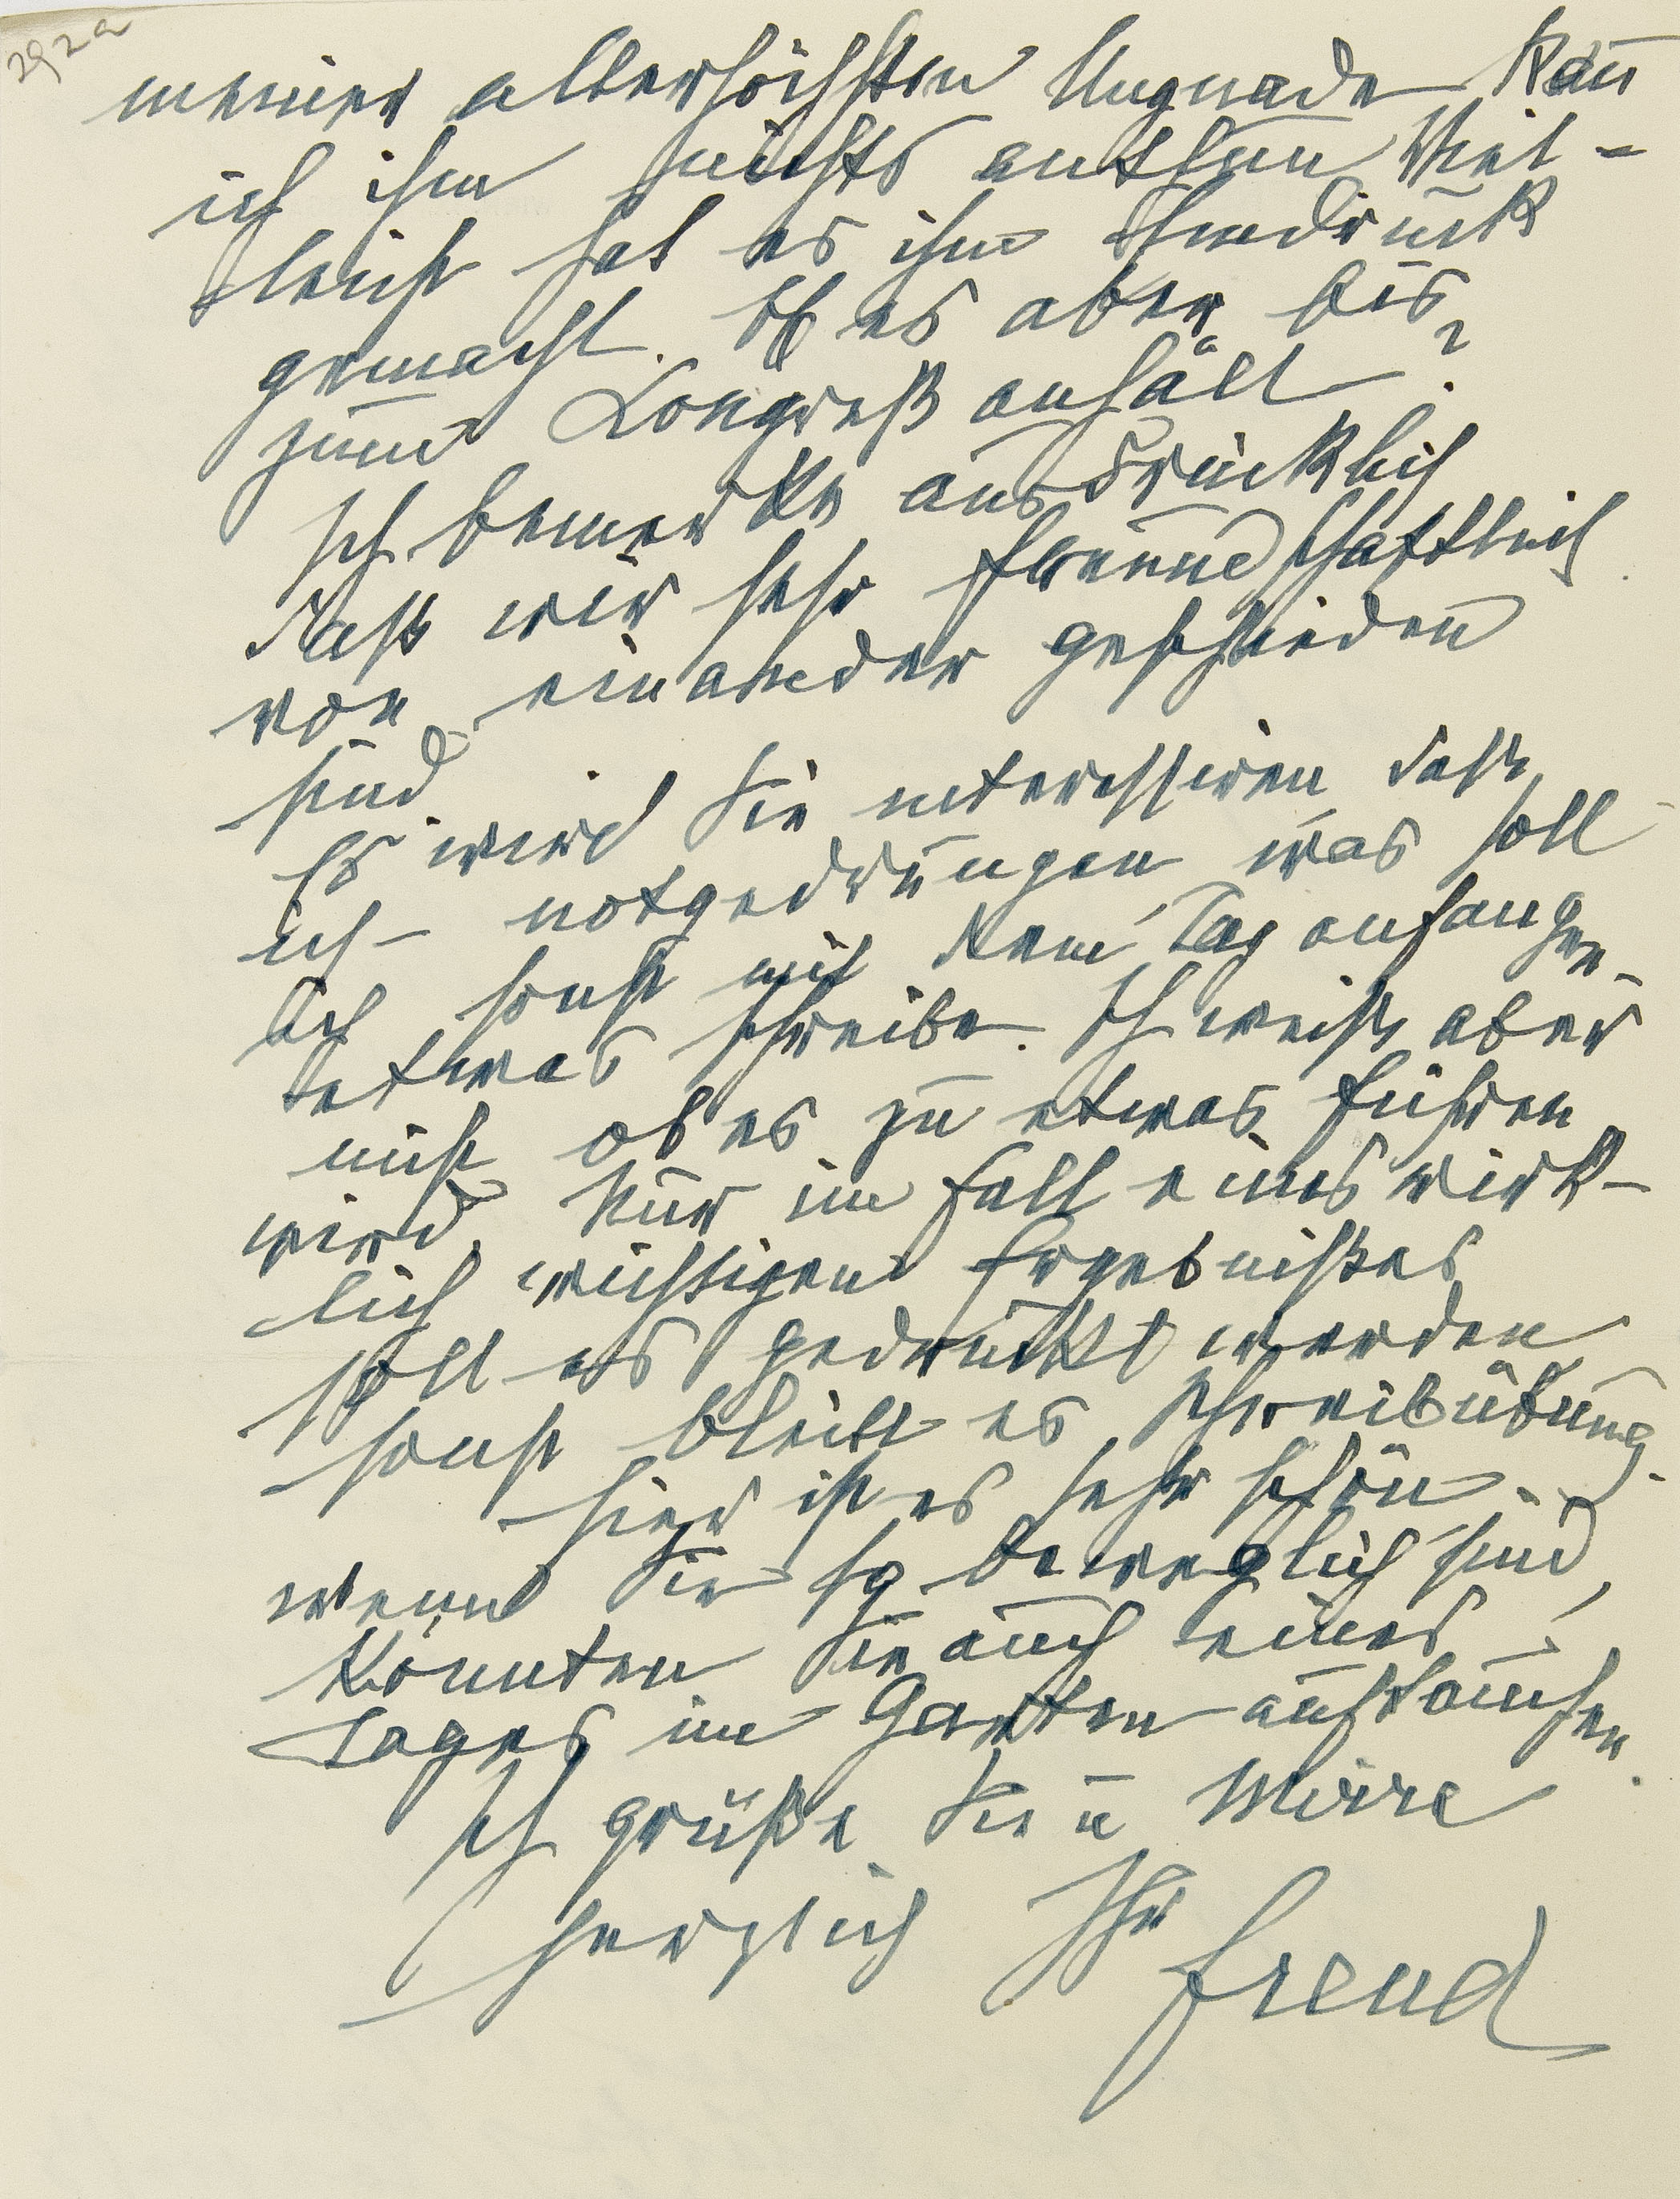 292a
meiner allerhöchsten Ungnade kan̄
ich ihm nichts anthun. Viel-
leicht hat es ihm Eindruck
gemacht. Ob es aber bis
zum Congreß anhält?
Ich bemerke ausdrücklich
daß wir sehr freundschaftlich
von einander geschieden
sind.
Es wird Sie interessiren, daß
ich – notgedrungen, was soll
ich sonst mit dem Tag anfangen –
etwas schreibe. Ich weiß aber
nicht ob es zu etwas führen
wird. Nur im Fall eines wirk-
lich wichtigen Ergebnißes
soll es gedruckt werden
sonst bleibt es Schreibübung.
Hier ist es sehr schön.
Wenn Sie so beweglich sind,
könnten Sie auch eines
Tages im Garten auftauchen.
Ich grüße Sie u Mirra
herzlich Ihr
Freud